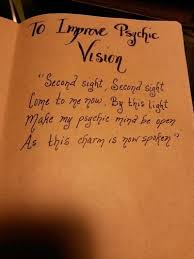 To Improve Psychic
Vision
"Second sight, Second sight
Come to me now. By this light
Make my psychic mind be open
As this charm is now spoken"